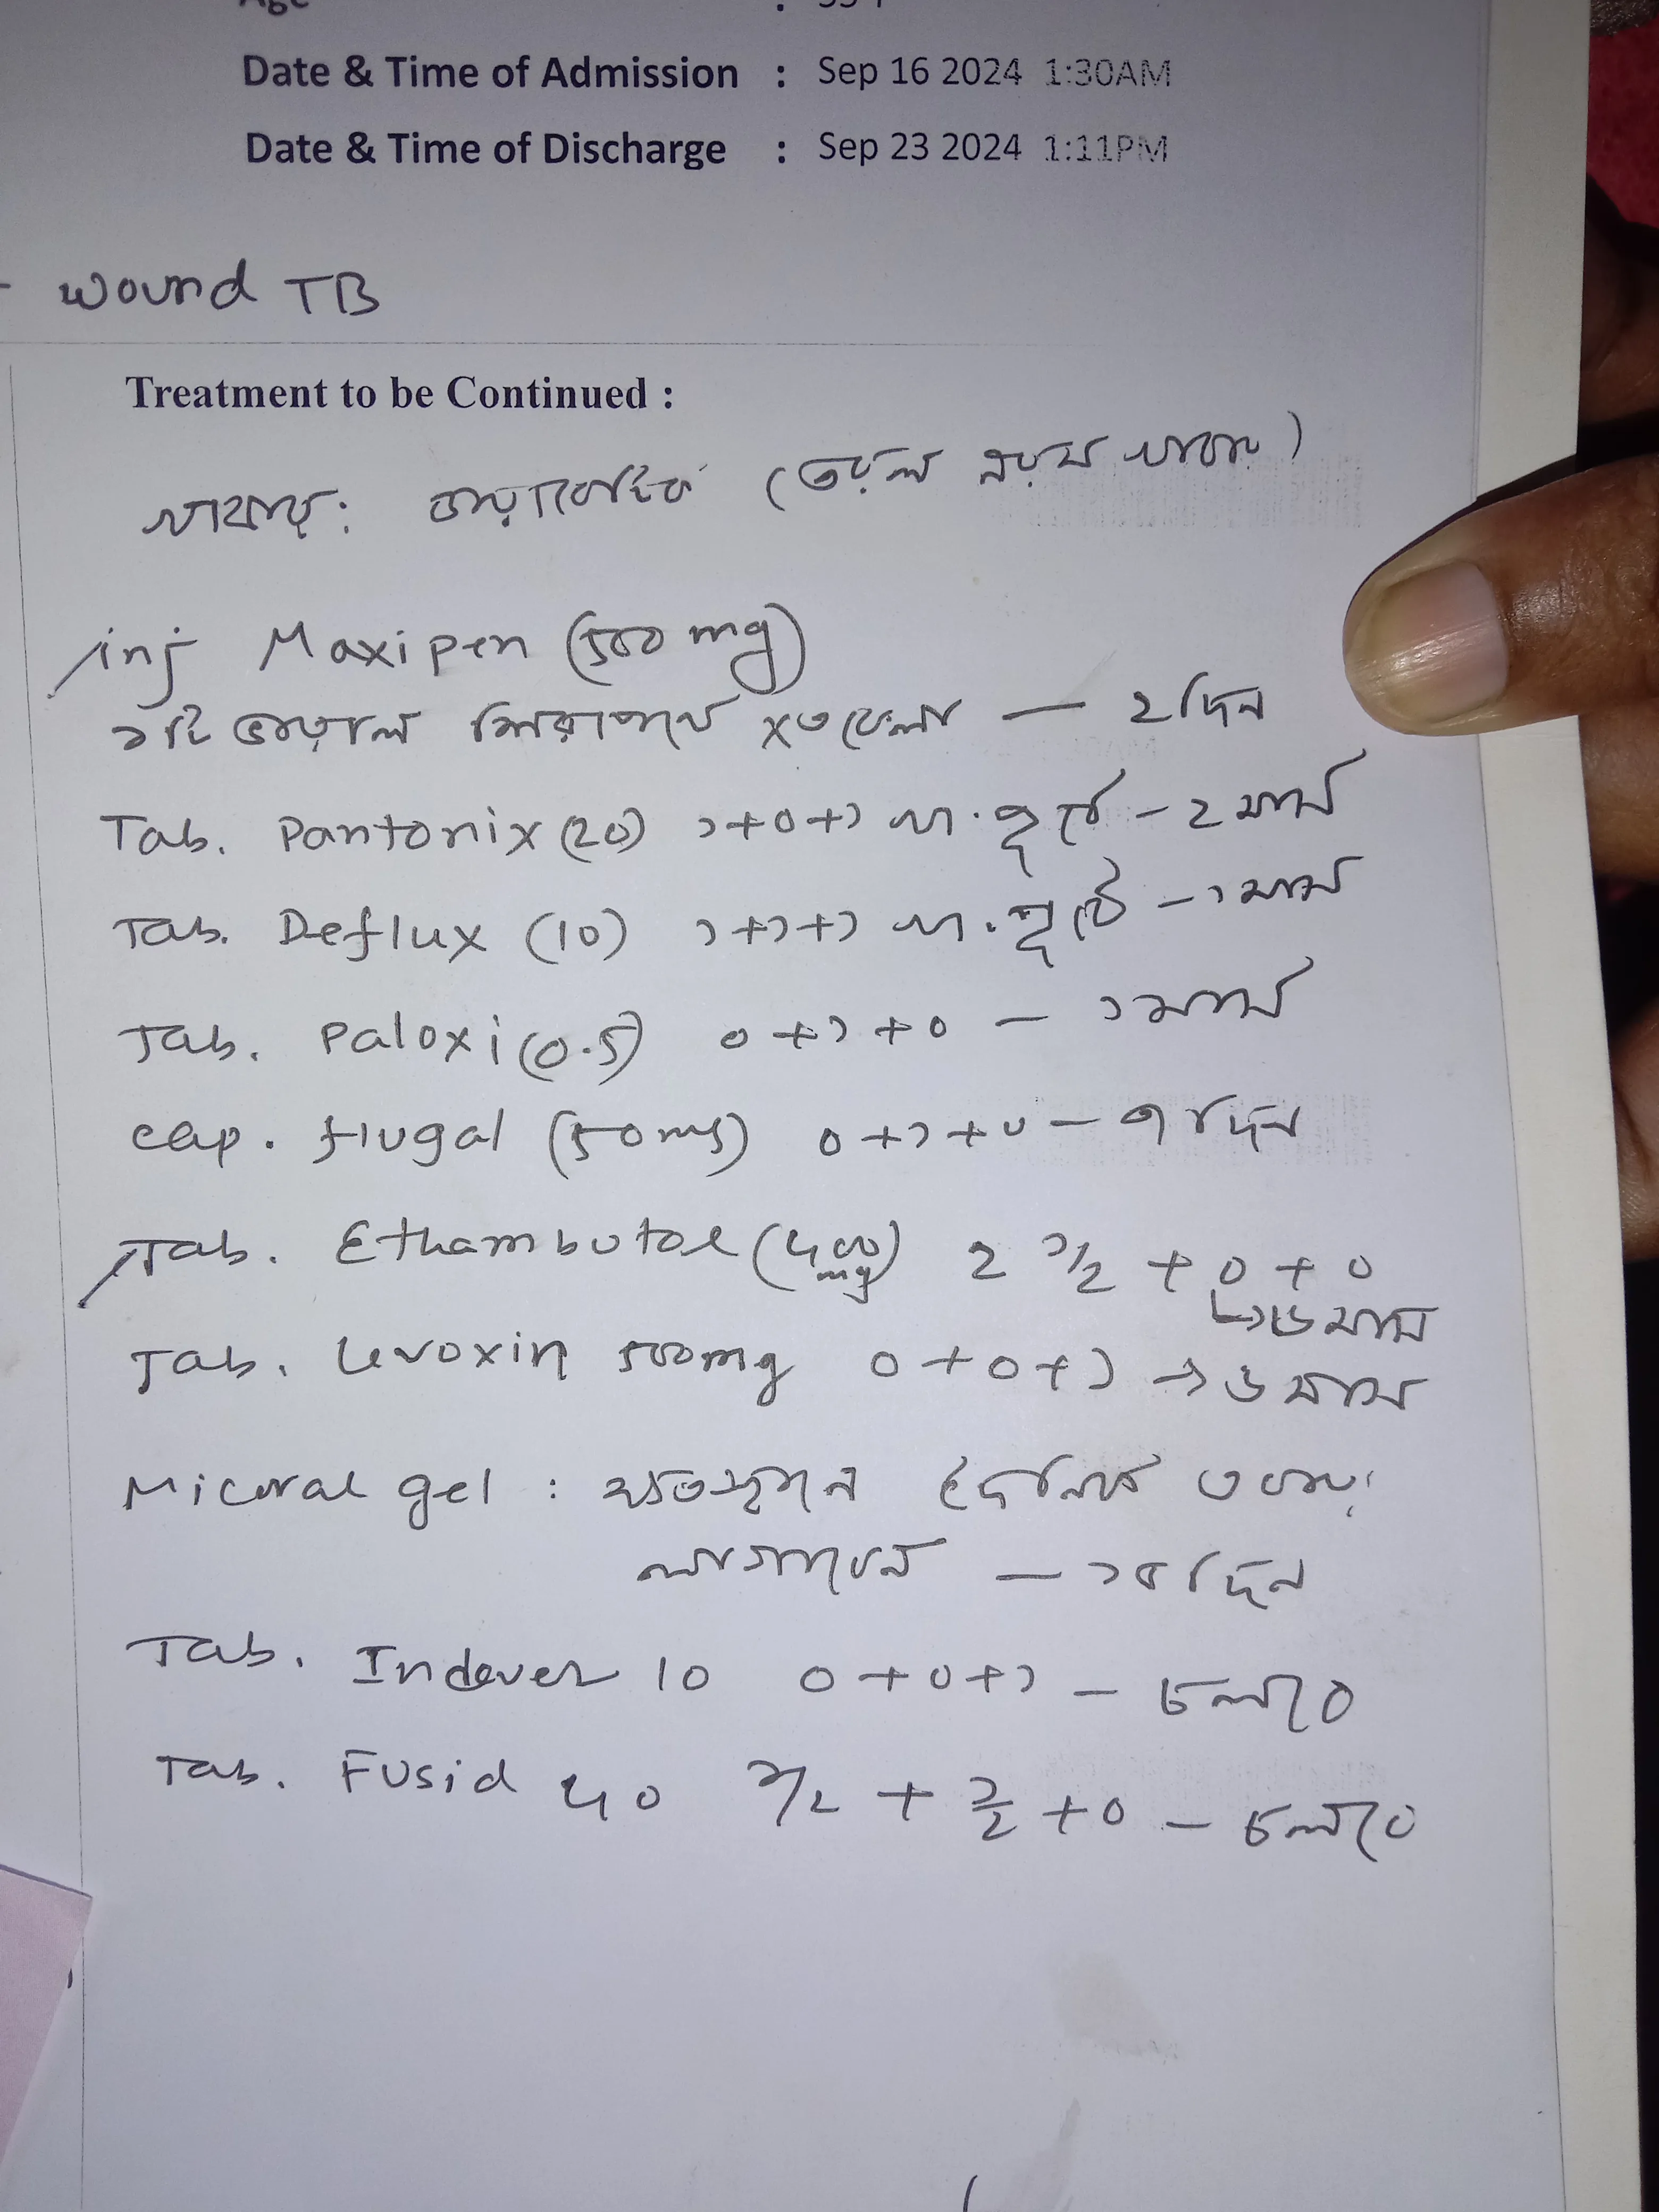 Age : 55 Y
Date & Time of Admission : Sep 16 2024 1:30AM
Date & Time of Discharge : Sep 23 2024 1:11PM
- Wound TB
Treatment to be Continued :
খাবার: ডায়াবেটিক (তরল নরম খাবার)
inj Maxipen (500 mg)
১টি ভায়াল শিরাপথে x ৩ বেলা — ২ দিন
Tab. Pantonix (20) ১+০+১ খা. পূর্বে - ২ মাস
Tab. Deflux (10) ১+১+১ খা. পূর্বে - ১ মাস
Tab. Paloxi (0.5) ০+১+০ — ১ মাস
Cap. flugal (50mg) ০+১+০ — ৭ দিন
Tab. Ethambutol (400 mg) 2 ১/২ + ০ + ০
↳ ৬ মাস
Tab. Levoxin 500mg ০+০+১ → ৬ মাস
Micoral gel : ক্ষতস্থানে দৈনিক ৩ বার
লাগাবেন — ১৫ দিন
Tab. Indever 10 ০+০+১ — চলবে
Tab. Fusid 40 ১/২ + ১/২ + ০ — চলবে